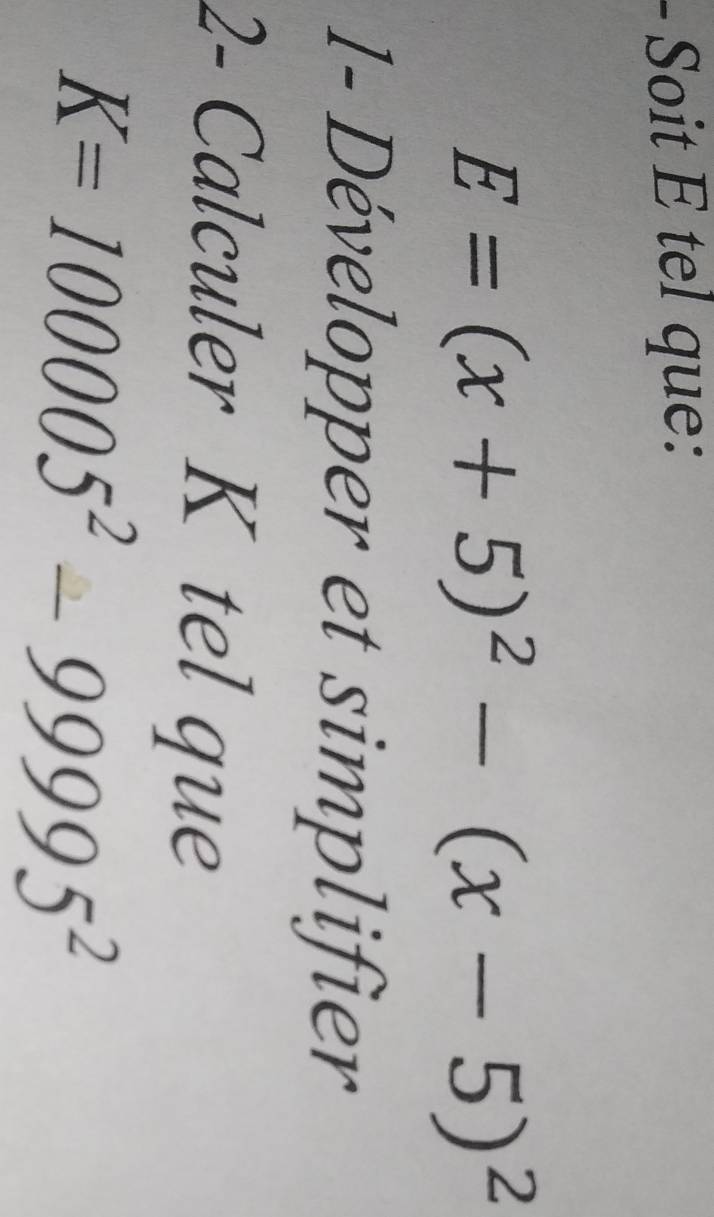 - Soit E tel que:
E = (x + 5)² − (x − 5)²
1- Développer et simplifier
2- Calculer K tel que
K= 100005² − 99995²